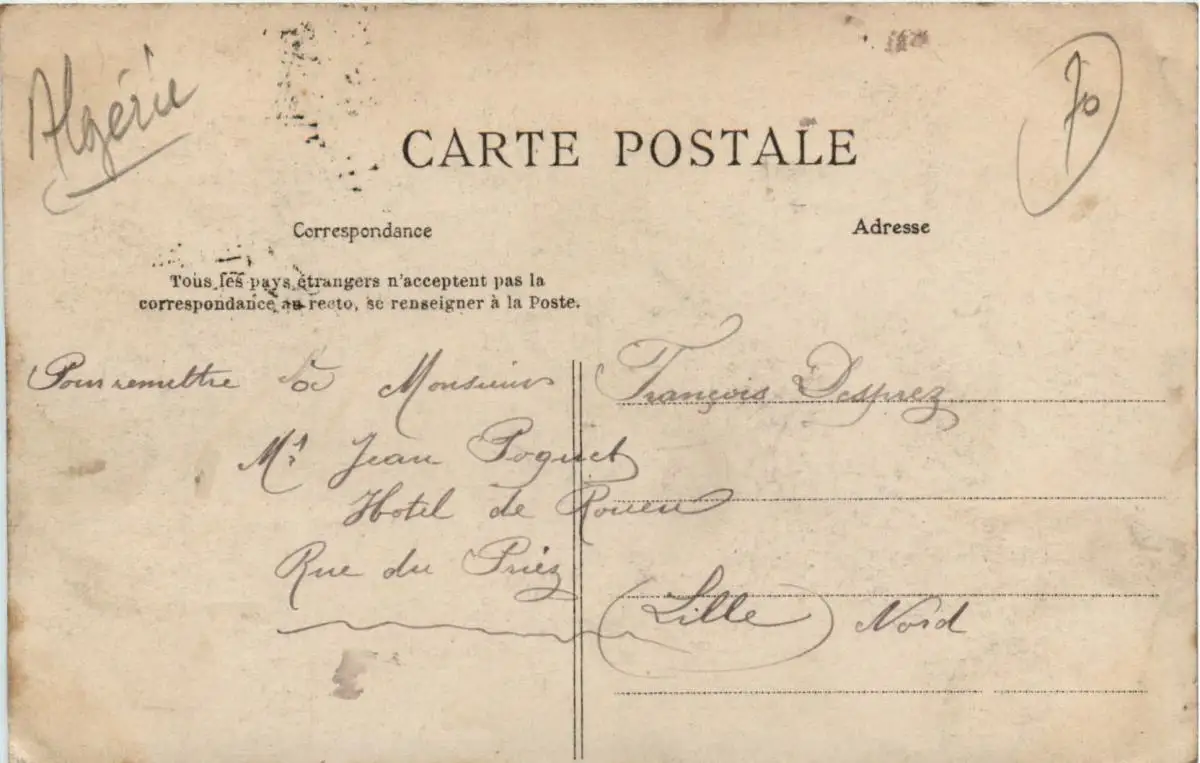 Algérie
70
CARTE POSTALE
Correspondance
Adresse
Tous les pays étrangers n'acceptent pas la
correspondance au recto, se renseigner à la Poste.
Pour remettre à Monsieur François Desprez
Mr Jean Poguet
Hotel de Rouen
Rue du Priéz
Lille Nord